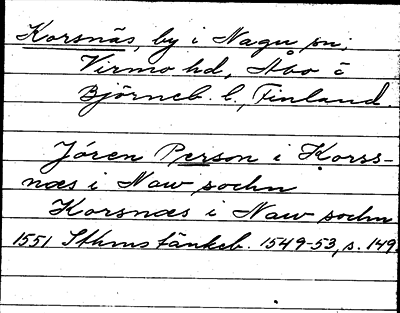 Korsnäs, by i Nagu sn;
Virmo hd, Åbo o
Björneb. l. Finland.
Jören Person i Korss-
næs i Naw sochn
Korsnæs i Naw sochn
1551 Sthms tänkeb. 1549-53, s. 149.